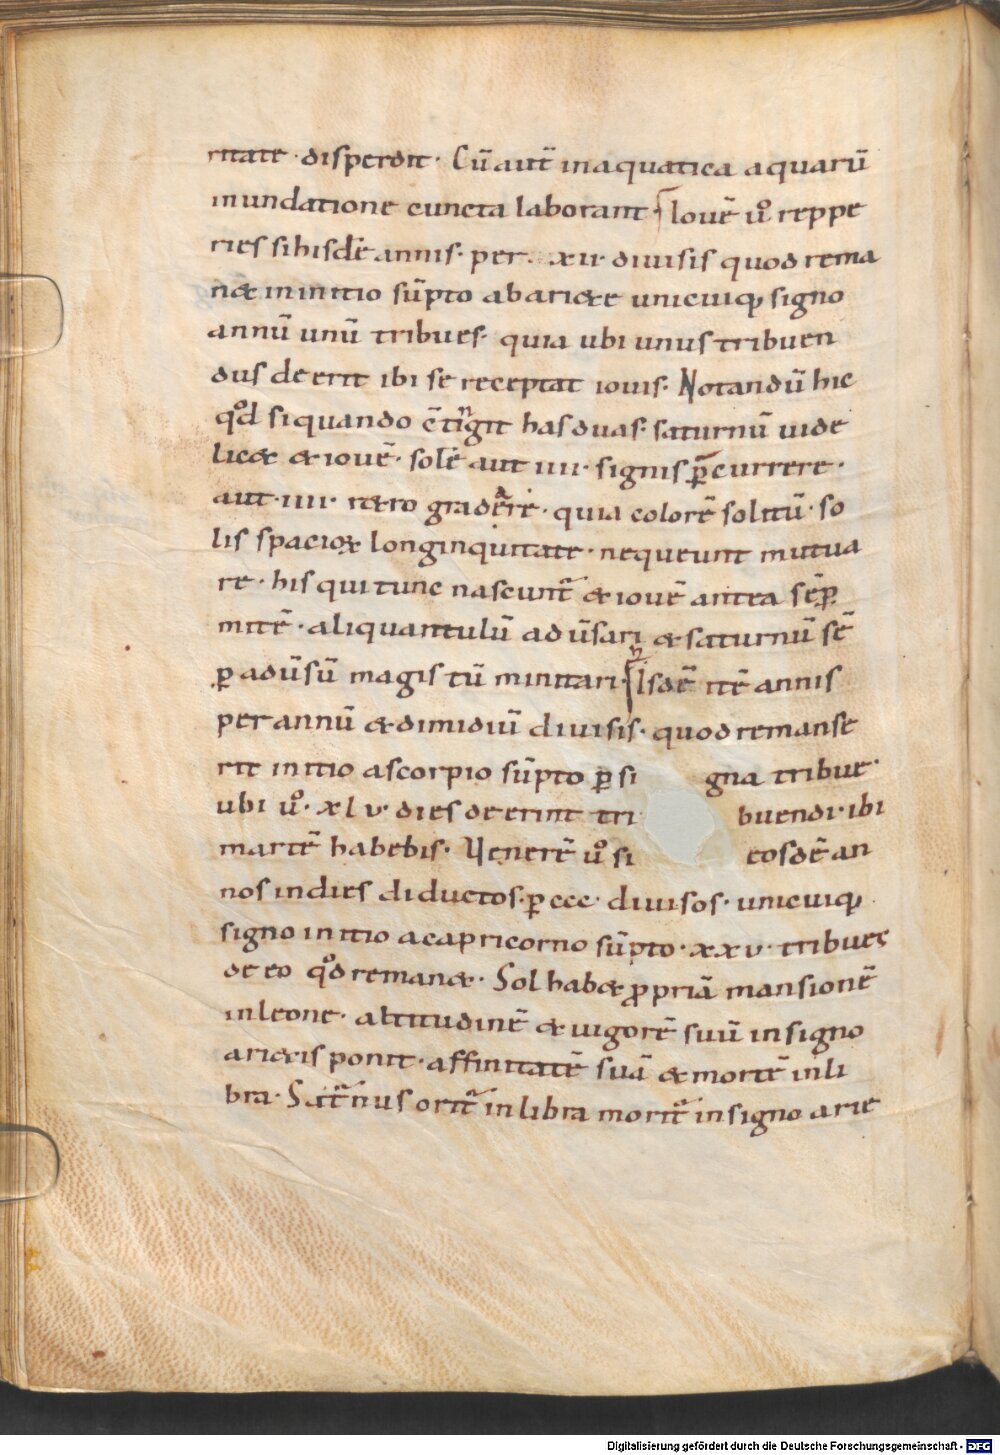 ritate · disperdit · Cū aut̄ in aquatica aquarū
inundatione cuncta laborant · Iovē ů reppe
ries si hisdē annis · per xii divisis quod rema
n& in initio sūpto ab ari&e unicuiq; signo
annū unū tribues · quia ubi unus tribuen
dus deerit ibi se receptat iovis · Notandū hic
qd̊ si quando c̄tingit has duas · saturnū vide
lic& & iovē · solē aut iiii · signis p̄currere ·
aut · iiii · r&ro gradere · quia colorē solitū · so
lis spacioꝝ longinquitate · nequeunt mutua
re · his qui tunc nascunt̄ & iovē antea sēꝑ
mitē · aliquantulū adūsari & saturnū sē
ꝑ adūsū magis tū minitari · Isdē itē annis
per annū & dimidiū divisis · quod remanse
rit initio a scorpio sūpto ꝑ si gna tribue ·
ubi ů · xlv · dies deerint tri buendi · ibi
martē habebis · Venerē ů si eosdē an
nos in dies diductos · ꝑ ccc · divisos · unicuiq;
signo initio a capricorno sūpto · xxv · tribues
de eo qd̊ reman& · Sol hab& ꝓpriā mansionē
in leone · altitudinē & vigorē suū in signo
ari&is ponit · affinitatē suā & mortē in li
bra · Sat̄nus orit̄ in libra morit̄ in signo arie
Digitalisierung gefördert durch die Deutsche Forschungsgemeinschaft - DFG